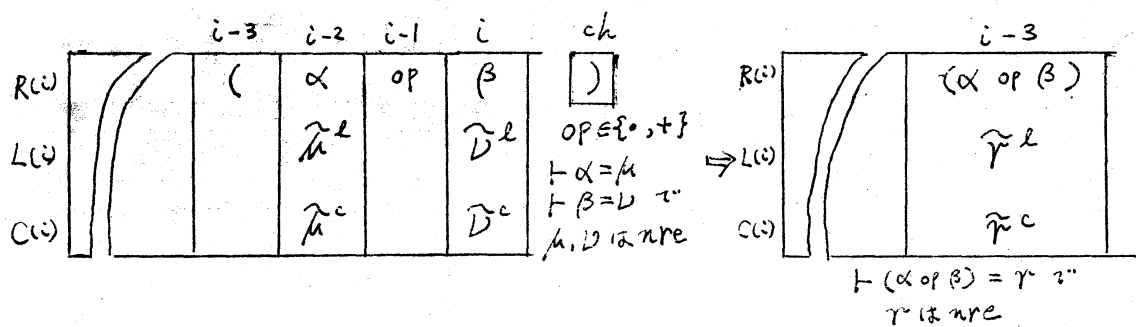 i-3 i-2 i-1 i ch
R(i) ( α op β )
L(i) μ̃ˡ ν̃ˡ
C(i) μ̃ᶜ ν̃ᶜ
op∈{•,+}
⊢α=μ
⊢β=ν で
μ,νはnre
⇒
i-3
R(i) (α op β)
L(i) γ̃ˡ
C(i) γ̃ᶜ
⊢(α op β)=γ で
γはnre